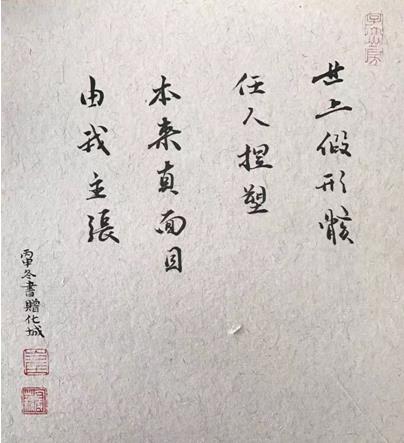 世上假形骸
任人捏塑
本来真面目
由我主張
丙申冬書贈化城